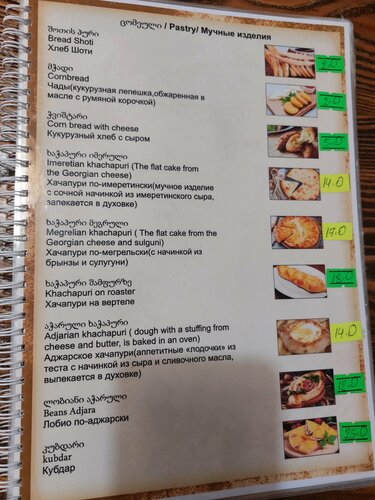 ცომეული / Pastry/ Мучные изделия
შოთის პური
Bread Shoti
Хлеб Шоти
2.0
მჭადი
Cornbread
Чады(кукурузная лепешка,обжаренная в
масле с румяной корочкой)
2.0
ჭვიშტარი
Corn bread with cheese
Кукурузный хлеб с сыром
5.0
ხაჭაპური იმერული
Imeretian khachapuri (The flat cake from
the Georgian cheese)
Хачапури по-имеретински(мучное изделие
с сочной начинкой из имеретинского сыра,
запекается в духовке)
14.0
ხაჭაპური მეგრული
Megrelian khachapuri ( The flat cake from the
Georgian cheese and sulguni)
Хачапури по-мегрельски(с начинкой из
брынзы и сулугуни)
17.0
ხაჭაპური შამფურზე
Khachapuri on roaster
Хачапури на вертеле
აჭარული ხაჭაპური
Adjarian khachapuri ( dough with a stuffing from
cheese and butter, is baked in an oven)
Аджарское хачапури(аппетитные «лодочки» из
теста с начинкой из сыра и сливочного масла,
выпекается в духовке)
14.0
ლობიანი აჭარული
Beans Adjara
Лобио по-аджарски
12.0
კუბდარი
kubdar
Кубдар
25.0